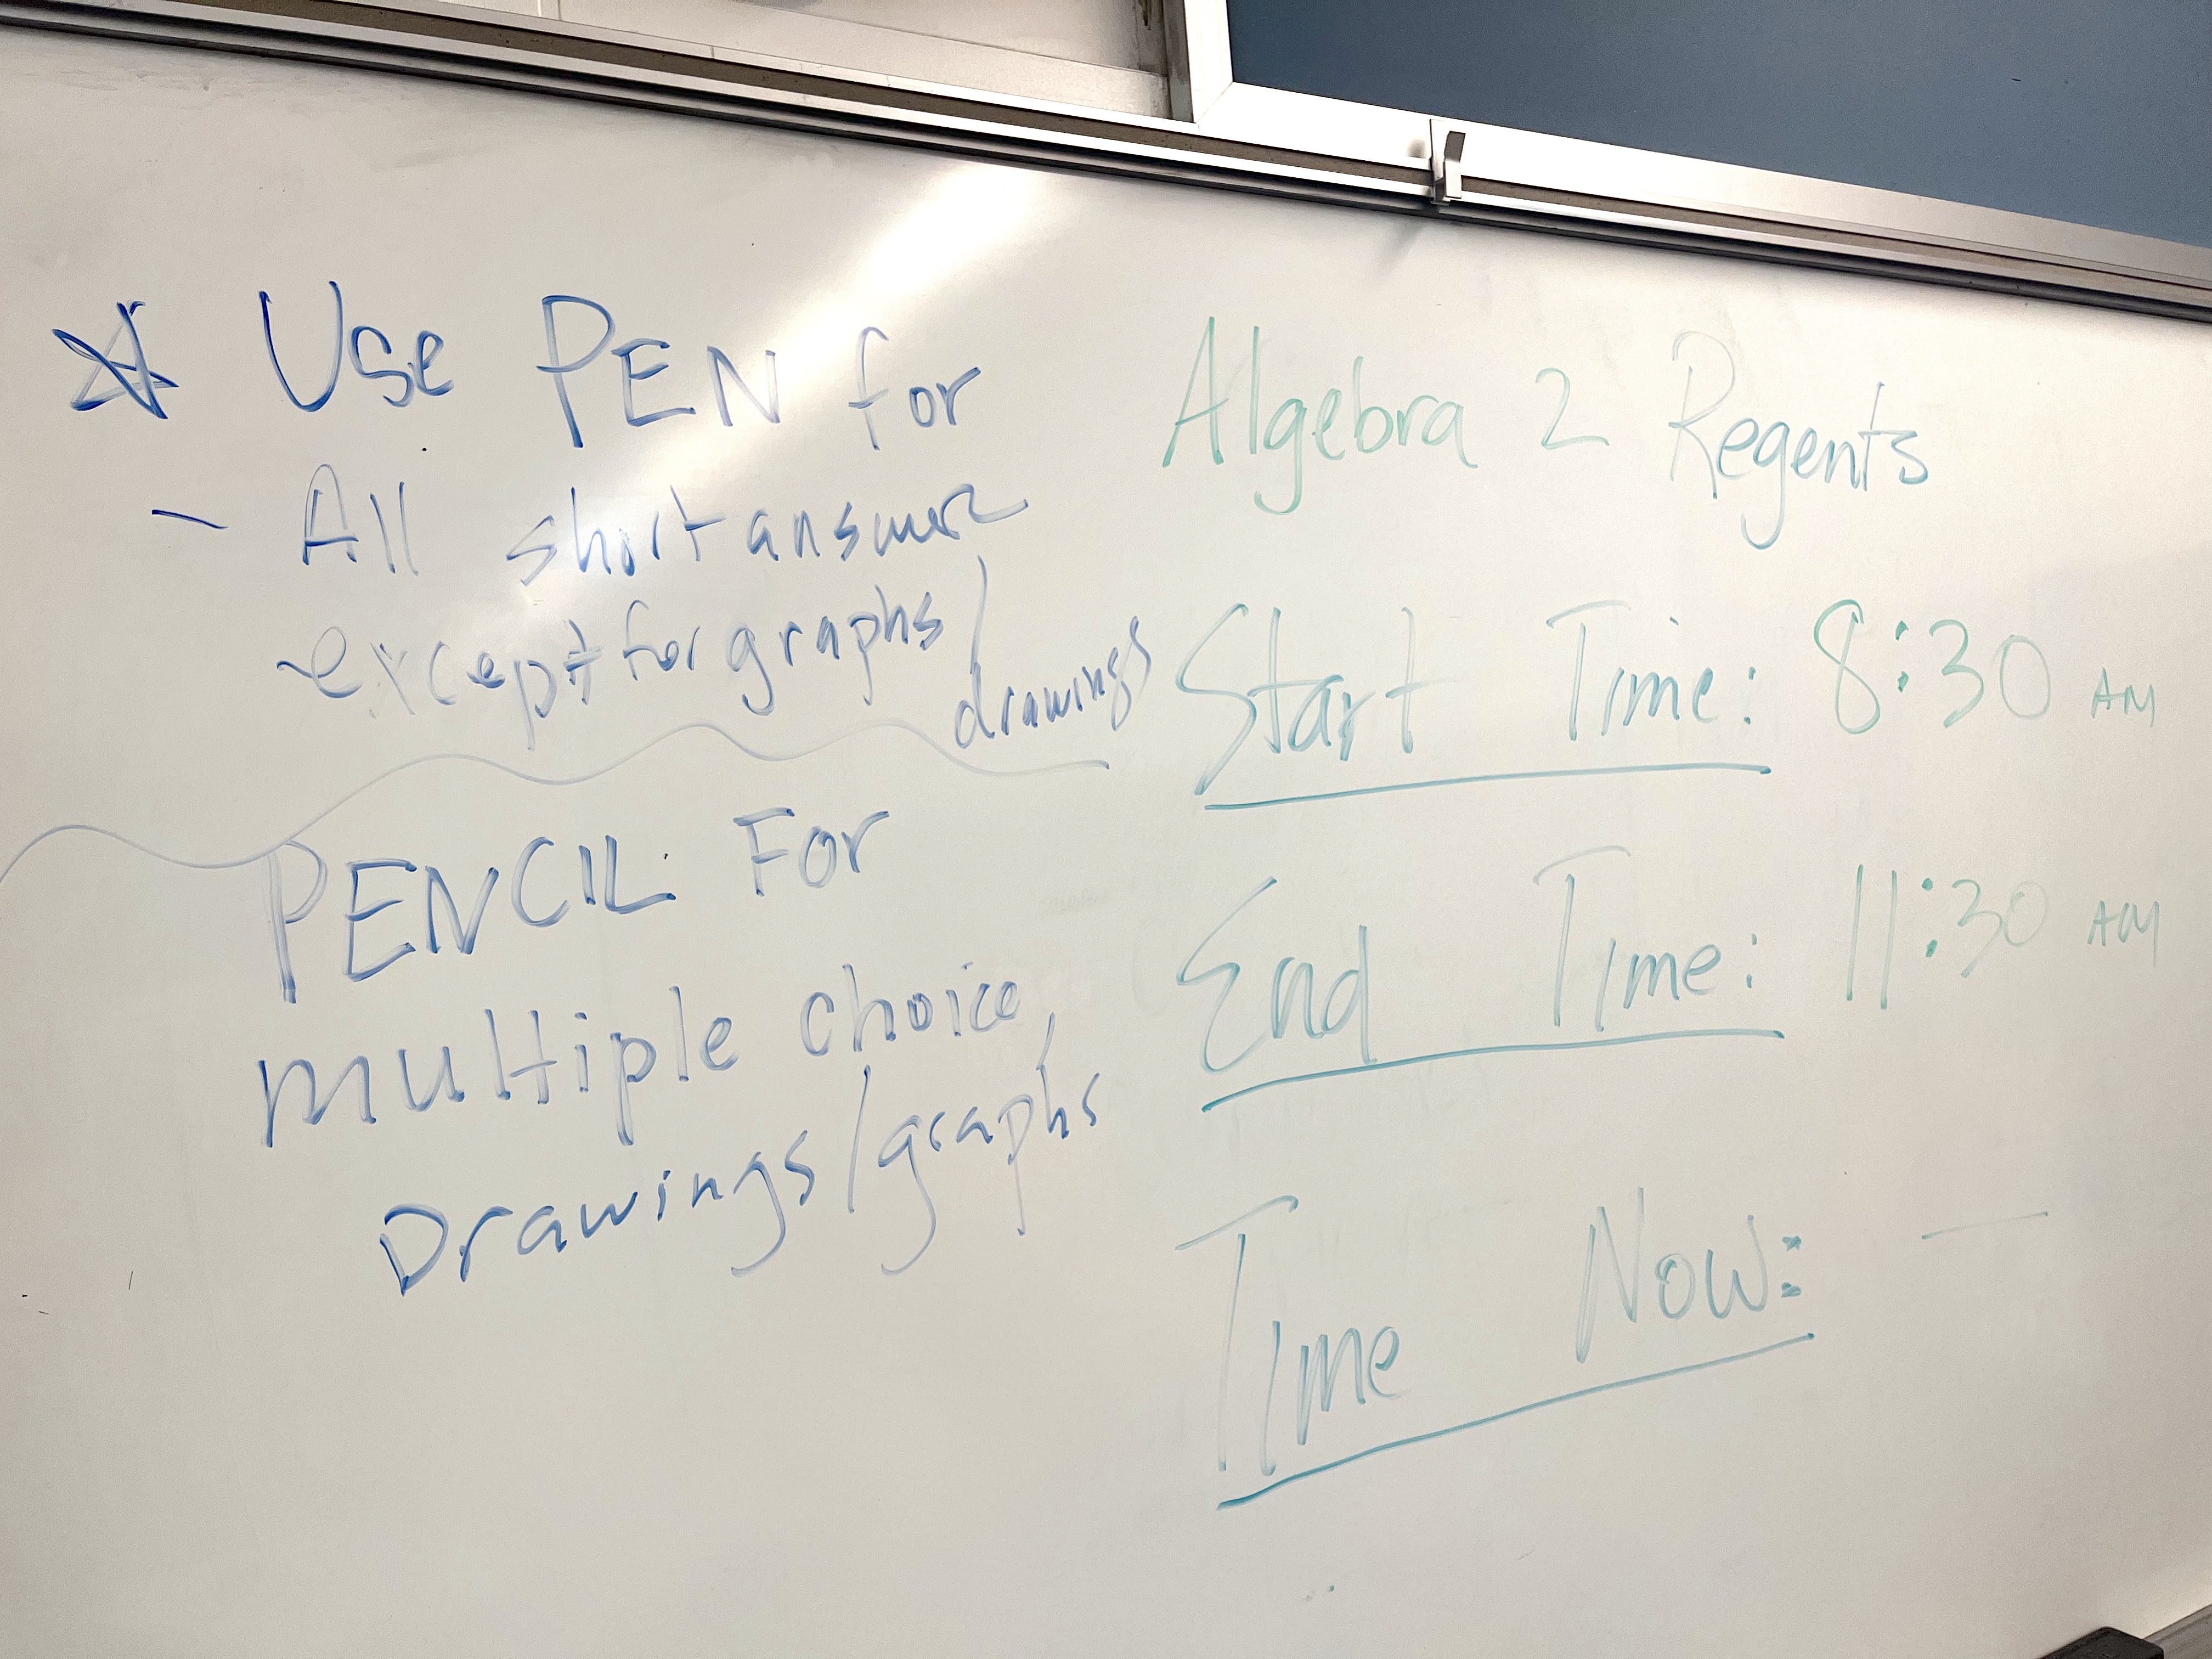 ☆ Use PEN for
- All short answer
except for graphs/
drawings
PENCIL For
multiple choice,
Drawings/graphs
Algebra 2 Regents
Start Time: 8:30 AM
End Time: 11:30 AM
Time Now: —